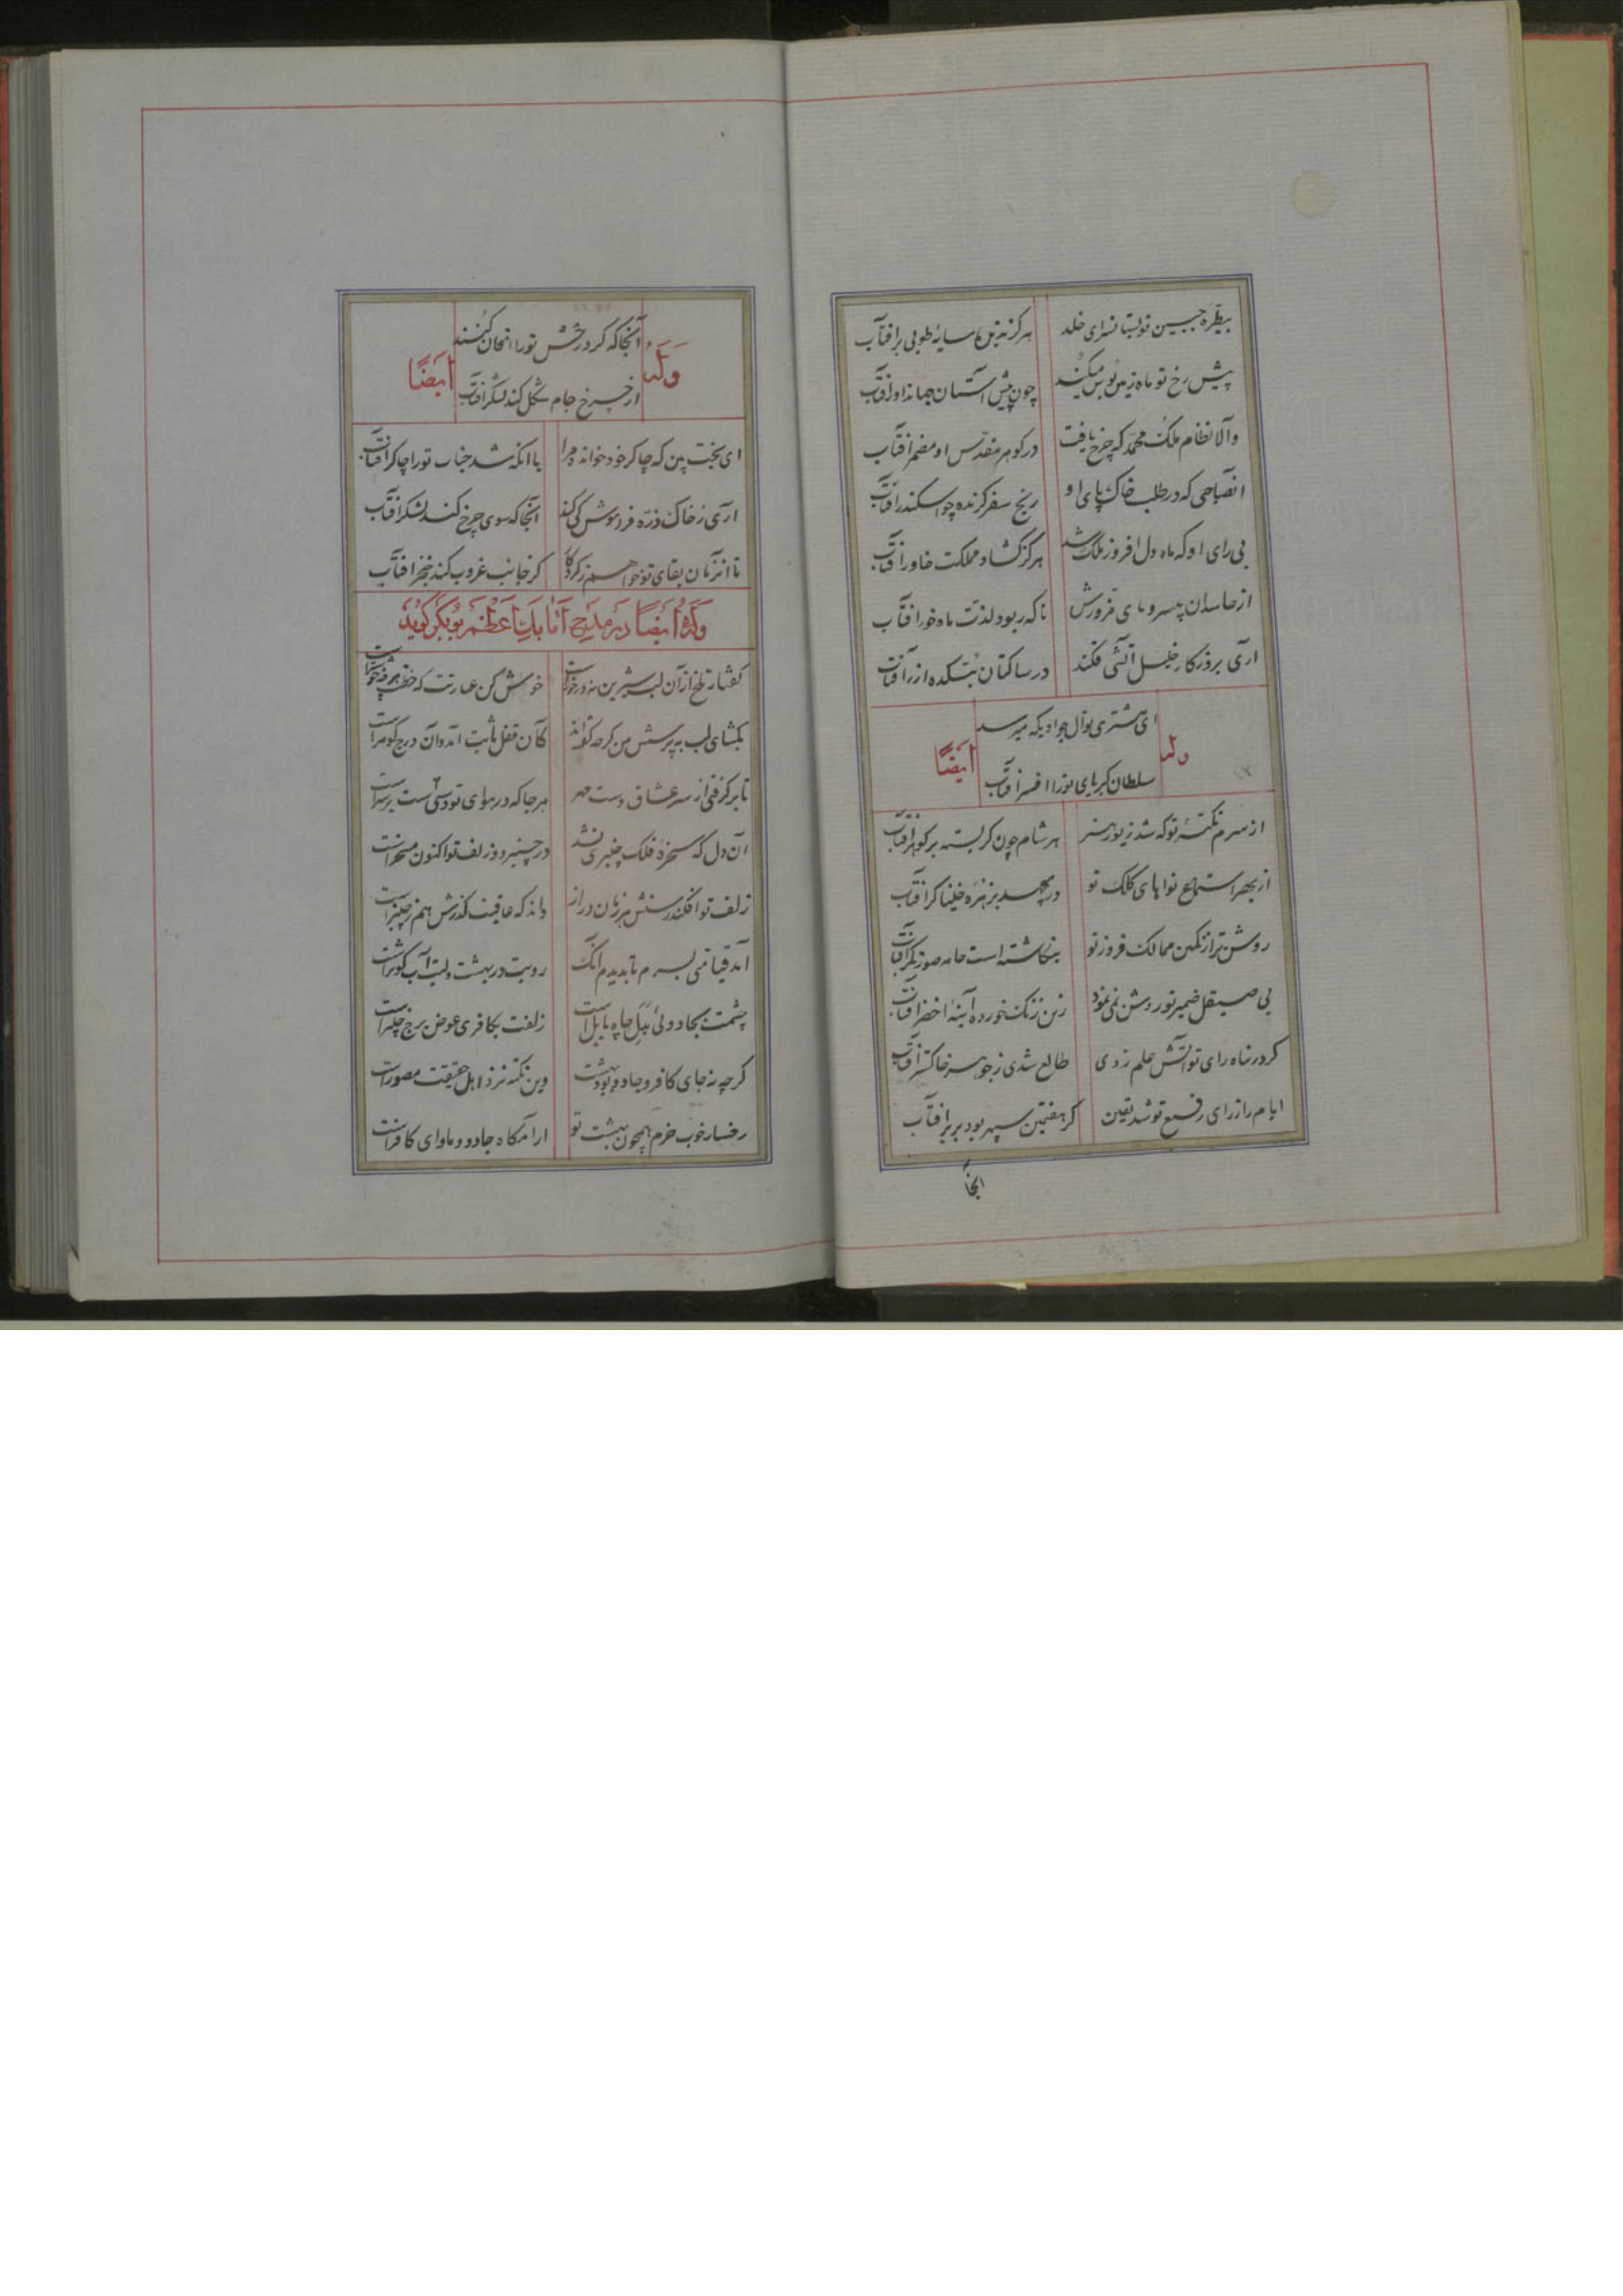 بیطره جبین تو بستانسرای خلد هرگز ندید سایهٔ طوبی بر افتاب
پیش رخ تو ماه زمین بوس میکند چون پیش آستان جهاندا‌ور افتاب
والا نظام ملک محمد که چرخ یافت در گوهر مقدس او مضمر افتاب
انصباحی که در طلب خاک پای او رنج سفر گزیده چو اسکندر افتاب
بی رای او که ماه دل افروز ملک شد هرگز گشاد مملکت خاور افتاب
از حاسدان پیسر و پای فرورش ناگه ربود لذت ماه خور افتاب
اری بروزگار خلیل آتشی فکند در ساکنان بتکده از آفتاب
ولَه
ای مشتری نوال جوادیکه میرسد
سلطان کبریای تو را افسر افتاب
ایضًا
از سرم نکتهٔ تو که شد زیور هنر هر شام چون کمر بسته بر گوهر افتاب
از بهر استماع نواهای کلک تو در مهد بزهره خنیاگر افتاب
روشن تر از نگین ممالک فروز تو ننگاشته است خامه صورتگر افتاب
بی صیقل ضمیر تو روشن نمی نمود زین زنگ خورده آینهٔ اخضر افتاب
گر در پناه رای تو آتش علم زدی طالع شدی ز جوهر خاکستر افتاب
ایام را ز رای رفیع تو شد یقین کز هفتمین سپهر بود برتر افتاب
انجا
ولَه
آنجا که گرد رخش تو را امتحان کنند
از چرخ جام شکل کند لشکر افتاب
ایضًا
ای بخت بین که چاکر خود خوانده مرا با انکه شد جناب تو را چاکر آفتاب
اری ز خاک ذره فرموش کی کند آنجا که سوی چرخ کند لشکر افتاب
تا انزمان بقای تو خواهم ز کردگار کز جانب غروب کند خنجر افتاب
وله ایضًا در مدیح اتابک اعظم بوبکر گوید
گفتار تلخ از آن لب شیرین نه در خور است خوش کن عبارتت که خطت هر چه خوشتر است
بگشای لب به پرسش من گرچه گفته‌اند کان قفل ثابت آمد وان درج گوهر است
تا بر گرفتی از سر عشاق دست مهر هر جا که در هوای تو دستی است بر سر است
آن دل که سخرهٔ فلک چنبری نشد در چنبر دو زلف تو اکنون مسخر است
زلف تو افکند رسنش هر زمان دراز داند که عاقبت گذرش هم ز چنبر است
آمد قیامتی بسرم تا بدیدم آنک رویت در بهشت و لبت آب کوثر است
چشمت بجادوئی بدل چاه بابل است زلفت بکافری عوض برج چلیپر است
گرچه نه جای کافر و جادو بود بهشت وین نکته نزد اهل حقیقت مصور است
رخسار خوب خرم همچون بهشت تو ارامگاه جادو و ماوای کافر است